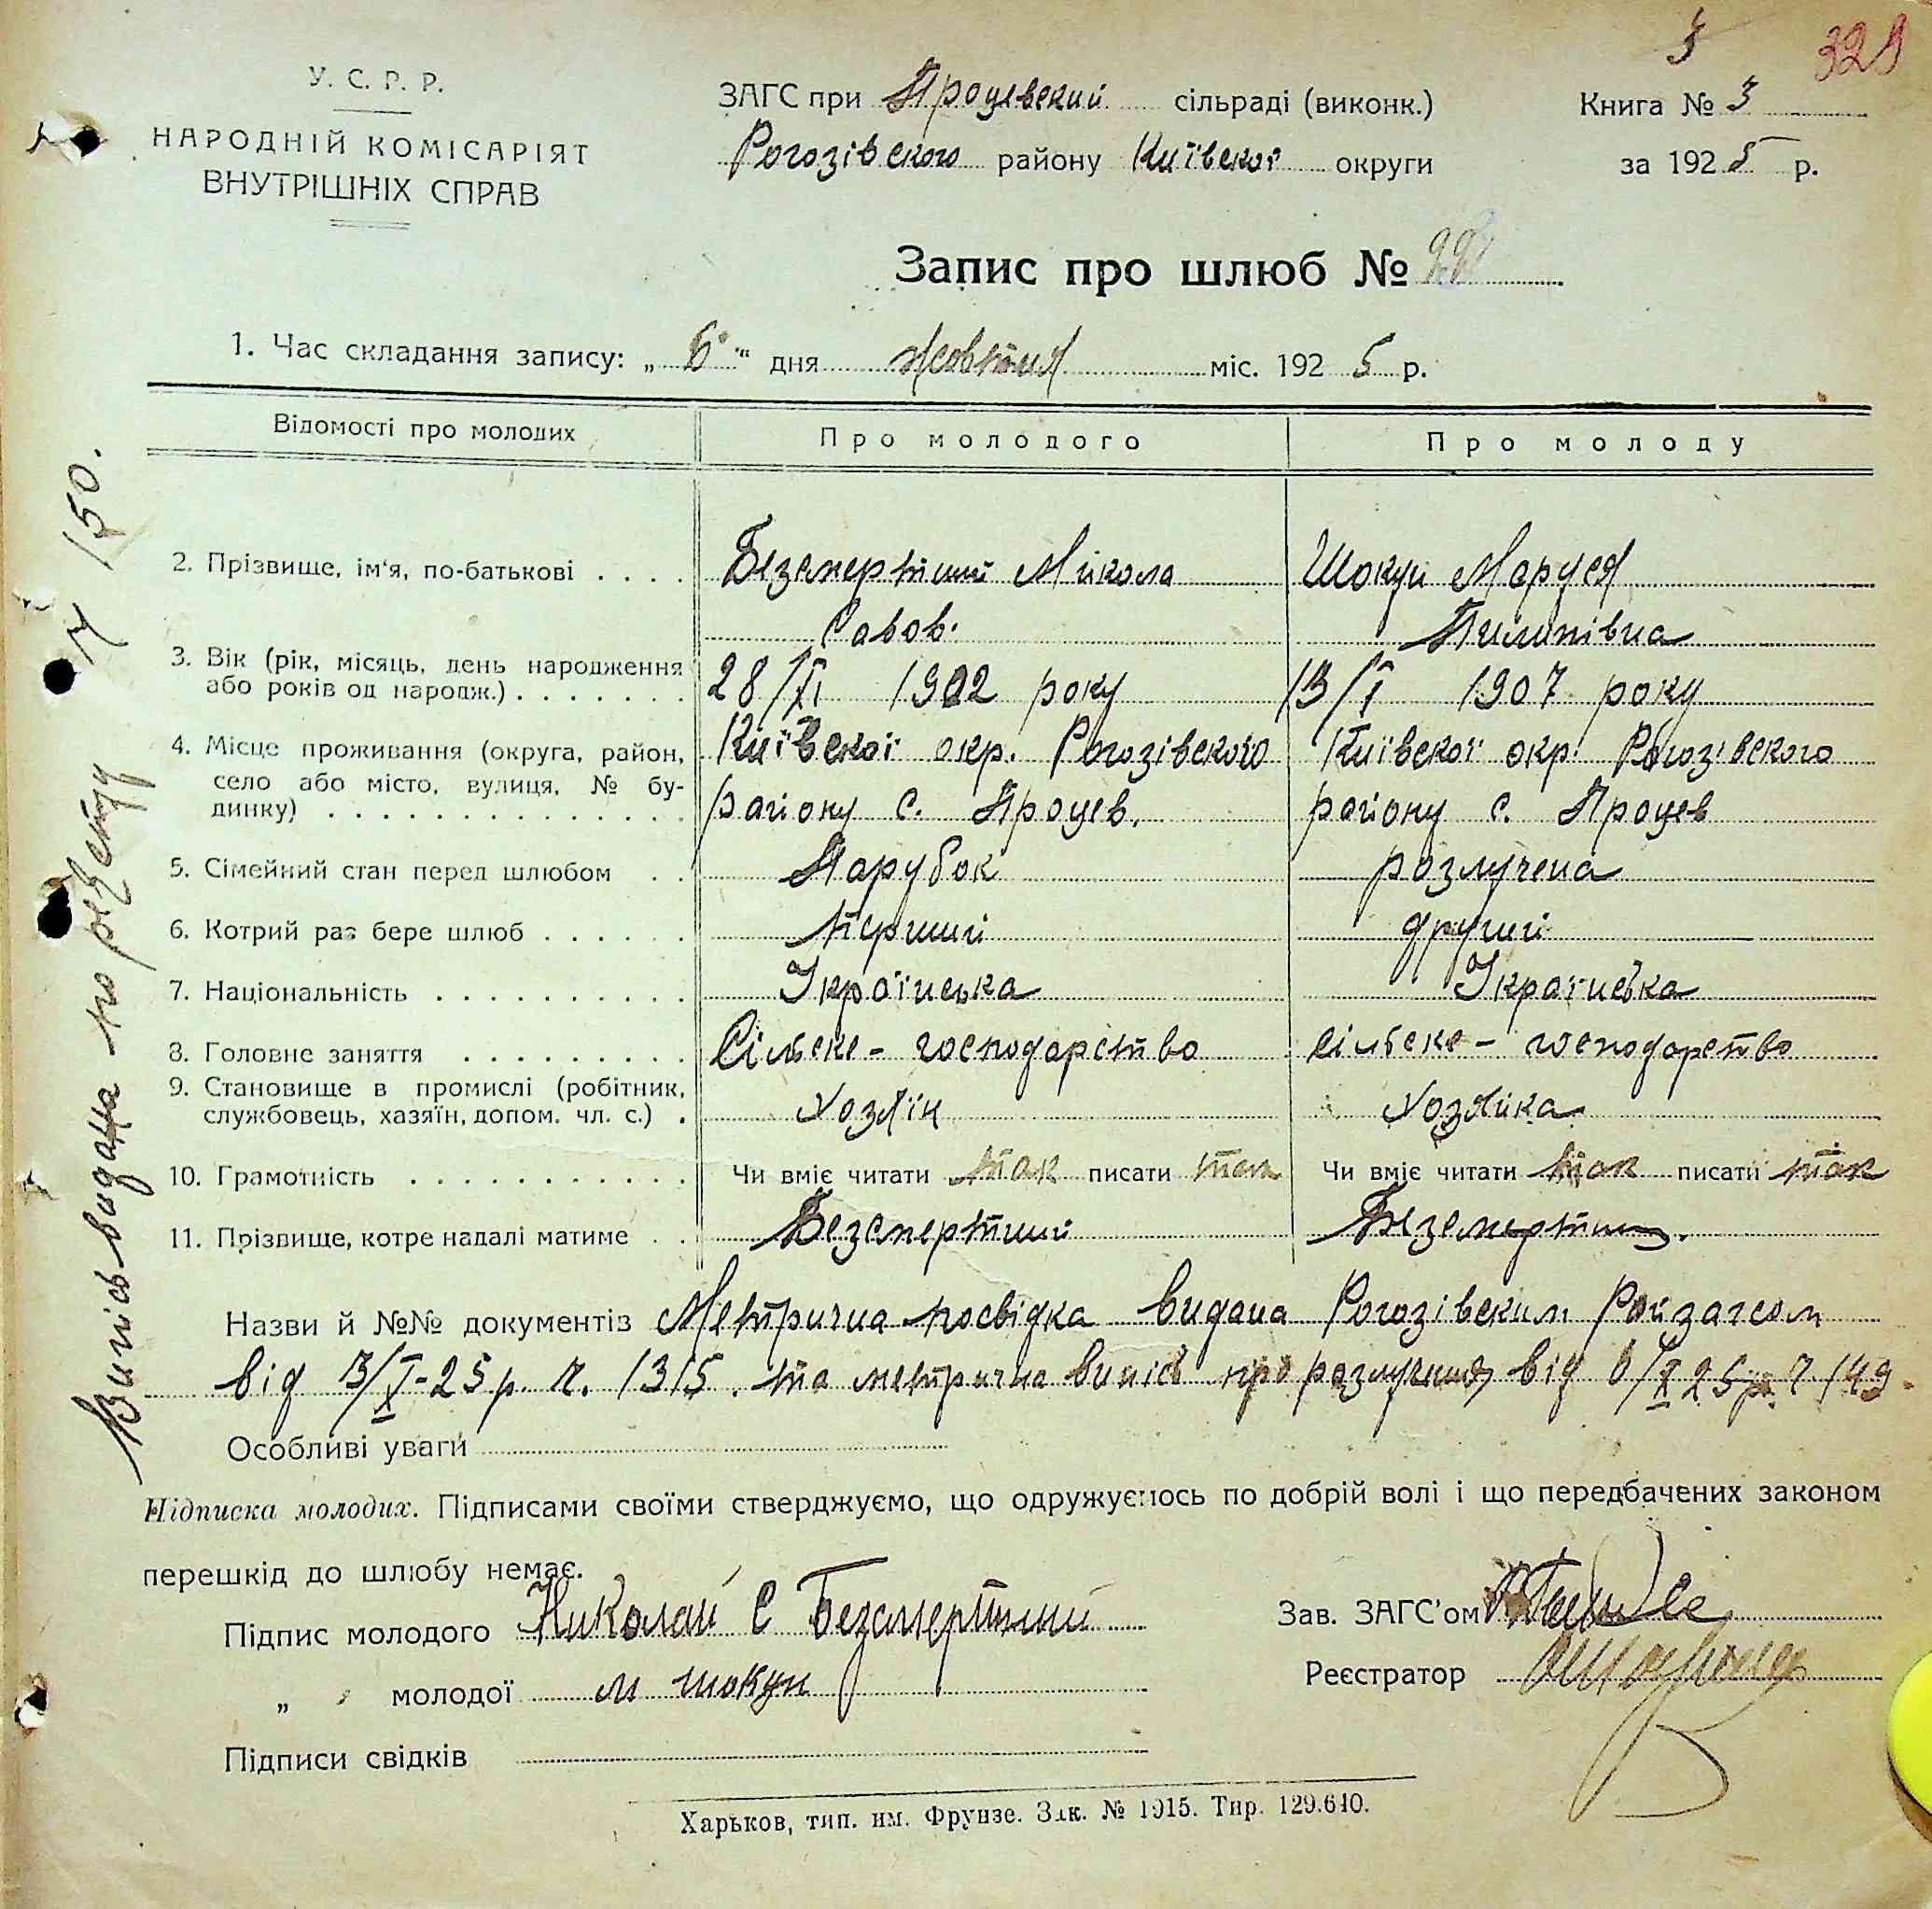 3 329
У. С. Р. Р.
НАРОДНІЙ КОМІСАРІЯТ
ВНУТРІШНІХ СПРАВ
ЗАГС при Процевский сільраді (виконк.)
Рогозівского району Київскої округи
Книга № 3
за 1925 р.
Запис про шлюб №
1. Час складання запису: „ 6 " дня жовтня міс. 1925 р.
Відомості про молодих Про молодого Про молоду
2. Прізвище, ім'я, по-батькові . . . . Безсмертний Микола Шокун Маруся
Савов. Пилипівна
3. Вік (рік, місяць, день народження 28/ 1902 року 13/I 1907 року
або років од народж.) . . . . . . .
4. Місце проживання (округа, район, Київскої окр. Рогозівского Київскої окр. Рогозівского
село або місто, вулиця, № бу-
динку) . . . . . . . . . . . . . . району с. Процев. району с. Процев
5. Сімейний стан перед шлюбом . . Парубок розлучена
6. Котрий раз бере шлюб . . . . . . Перший другий
7. Національність . . . . . . . . . . Українська Українська
8. Головне заняття . . . . . . . . . Сільске - господарство сільске - господарство
9. Становище в промислі (робітник,
службовець, хазяїн, допом. чл. с.) . Хозяїн Хозяйка
10. Грамотність . . . . . . . . . . . Чи вміє читати так писати так Чи вміє читати так писати так
11. Прізвище, котре надалі матиме . . Безсмертний
Назви й №№ документів Метрична посвідка видана Рогозівским Райзагсом
від 3/X-25р. ч. 1315. та метрична випісь про разлучення від 6/X 25р. ч 149.
Особливі уваги
Підписка молодих. Підписами своїми стверджуємо, що одружуємось по добрій волі і що передбачених законом
перешкід до шлюбу немає.
Підпис молодого Николай С Безсмертный
„ молодої м шокун
Підписи свідків
Зав. ЗАГС'ом
Реєстратор
Харьков, тип. им. Фрунзе. Зак. № 1915. Тир. 129.640.
Випісь видана по реєстру ч 150.